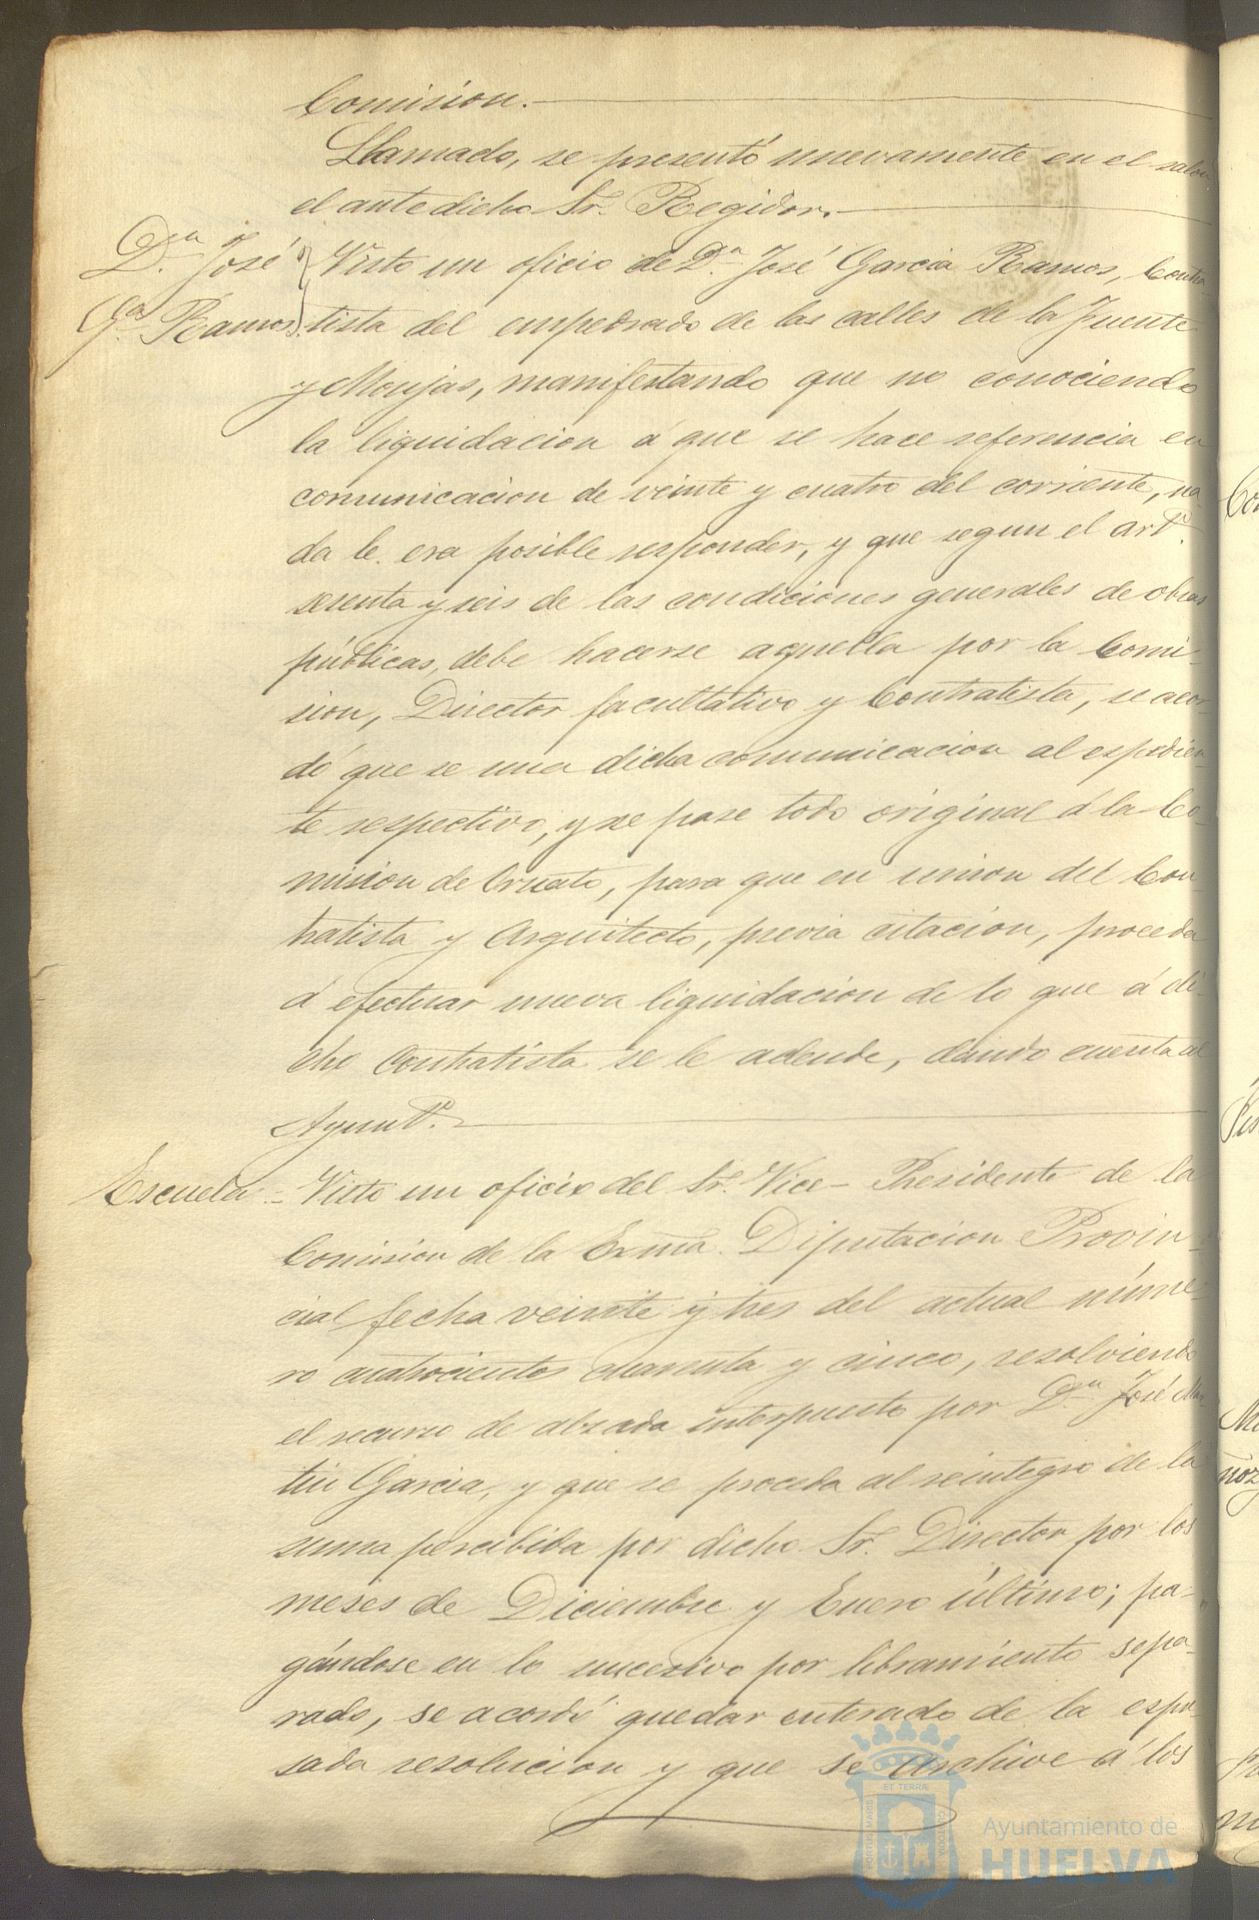 Comision.
Llamado, se presentó nuevamente en el salon
el antedicho Sr. Regidor.
Dn. José
Ga. Ramos
Visto un oficio de Dn. José Garcia Ramos, Contra-
tista del empedrado de las calles de la Fuente
y Monjas, manifestando que no conociendo
la liquidacion á que se hace referencia en
comunicacion de veinte y cuatro del corriente, na
da le era posible responder, y que segun el arto.
sesenta y seis de las condiciones generales de obras
públicas, debe hacerse aquella por la Comi-
sion, Director facultativo y Contratista, se acor-
dó que se una dicha comunicacion al espedien-
te respectivo, y se pase todo original á la Co-
mision de Ornato, para que en union del Con
tratista y Arquitecto, previa citacion, proceda
á efectuar nueva liquidacion de lo que á di-
cho Contratista se le adeude, dando cuenta al
Ayunto.
Escuela = Visto un oficio del Sr. Vice-Presidente de la
Comision de la Exma. Diputacion Provin-
cial fecha veinte y tres del actual núme-
ro cuatrocientos cuarenta y cinco, resolviendo
el recurso de alzada interpuesto por Dn. José Mar
tin Garcia, y que se proceda al reintegro de la
suma percibida por dicho Sr. Director por los
meses de Diciembre y Enero último; pa-
gándose en lo succesivo por libramiento sepa-
rado, se acordó quedar enterado de la espre
sada resolucion y que se archive á los
Ayuntamiento de
HUELVA